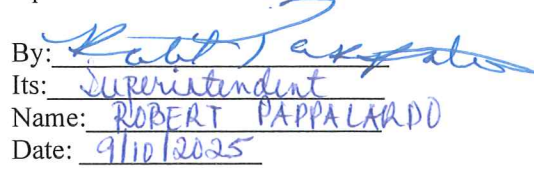 By: Robert Pappalardo
Its: Superintendent
Name: ROBERT PAPPALARDO
Date: 9/10/2025